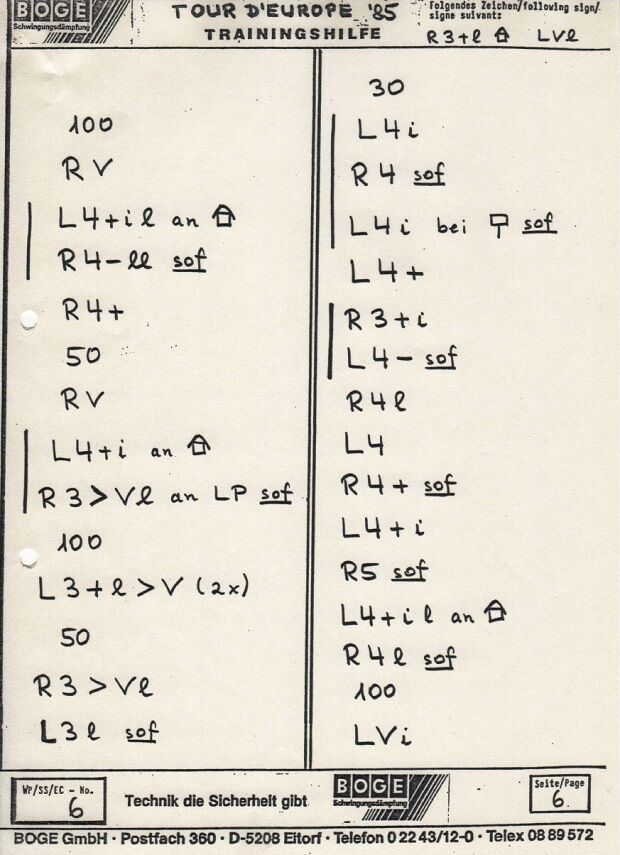 BOGE
Schwingungsdämpfung
TOUR D'EUROPE '85
TRAININGSHILFE
folgendes Zeichen/following sign/
signe suivant:
R3+l LVl
100
RV
L4+il an
R4-ll sof
R4+
50
RV
L4+i an
R3>Vl an LP sof
100
L3+l>V (2x)
50
R3>Vl
L3l sof
30
L4i
R4 sof
L4i bei sof
L4+
R3+i
L4- sof
R4l
L4
R4+ sof
L4+i
R5 sof
L4+il an
R4l sof
100
LVi
WP/SS/EC - No.
6
Technik die Sicherheit gibt
BOGE
Schwingungsdämpfung
Seite/Page
6
BOGE GmbH · Postfach 360 · D-5208 Eitorf · Telefon 0 22 43/12-0 · Telex 08 89 572